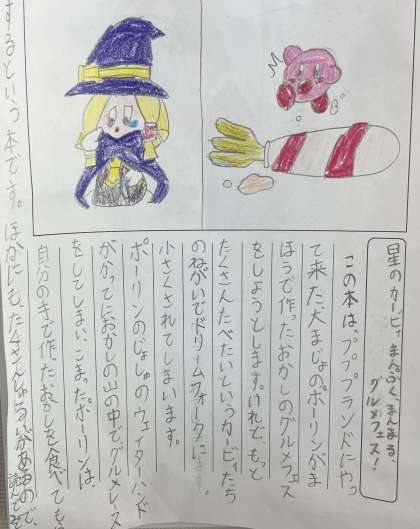 星のカービィ まんぷく、まんまる、
グルメフェス!
この本は、プププランドにやっ
て来た、大まじょのポーリンがま
ほうで作ったおかしのグルメフェス
をしようとします。けれど、もっと
たくさんたべたいというカービィたち
のねがいでドリームフォークに
小さくされてしまいます。
ポーリンのじょしゅのウェイターハンド
がかってにおかしの山の中で、グルメレース
をしてしまい、こまったポーリンは、
自分の手で作ったおかしを食べても
するという本です。ほかにも、たくさんしゅるいがあるので、
読んで